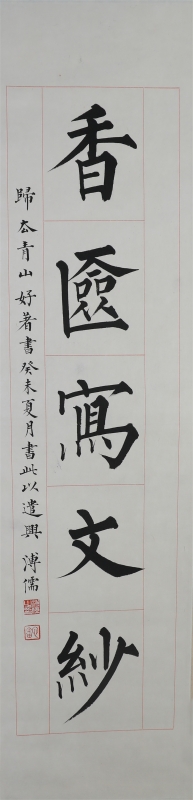 香匳寫文紗
歸厺青山好著書癸未夏月書此以遣興 溥儒